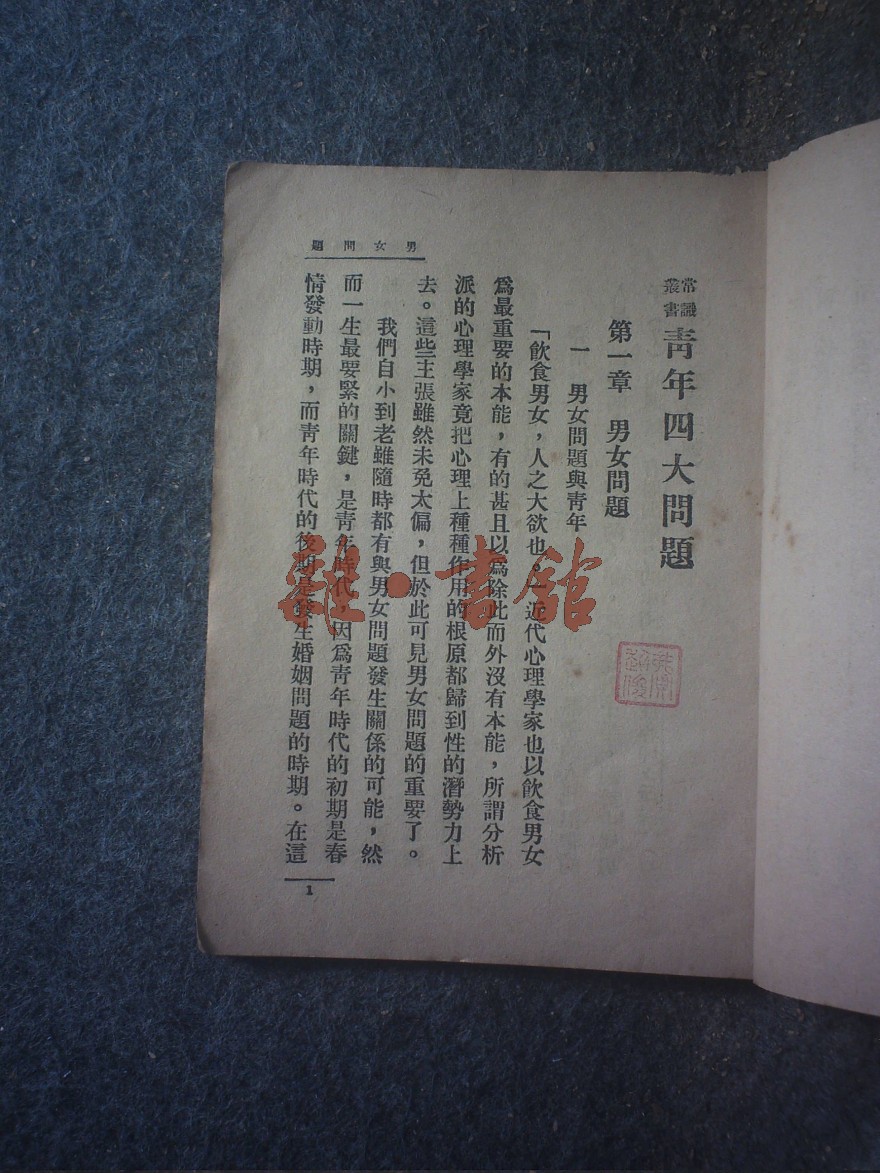 常識叢書
靑年四大問題
第一章　男女問題
一　男女問題與靑年
「飮食男女，人之大欲也。」近代心理學家也以飮食男女
爲最重要的本能，有的甚且以爲除此而外沒有本能，所謂分析
派的心理學家竟把心理上種種作用的根原都歸到性的潛勢力上
去。這些主張雖然未免太偏，但於此可見男女問題的重要了。
我們自小到老雖隨時都有與男女問題發生關係的可能，然
而一生最要緊的關鍵，是靑年時代，因爲靑年時代的初期是春
情發動時期，而靑年時代的後期是發生婚姻問題的時期。在這
男女問題
1
雜·書館